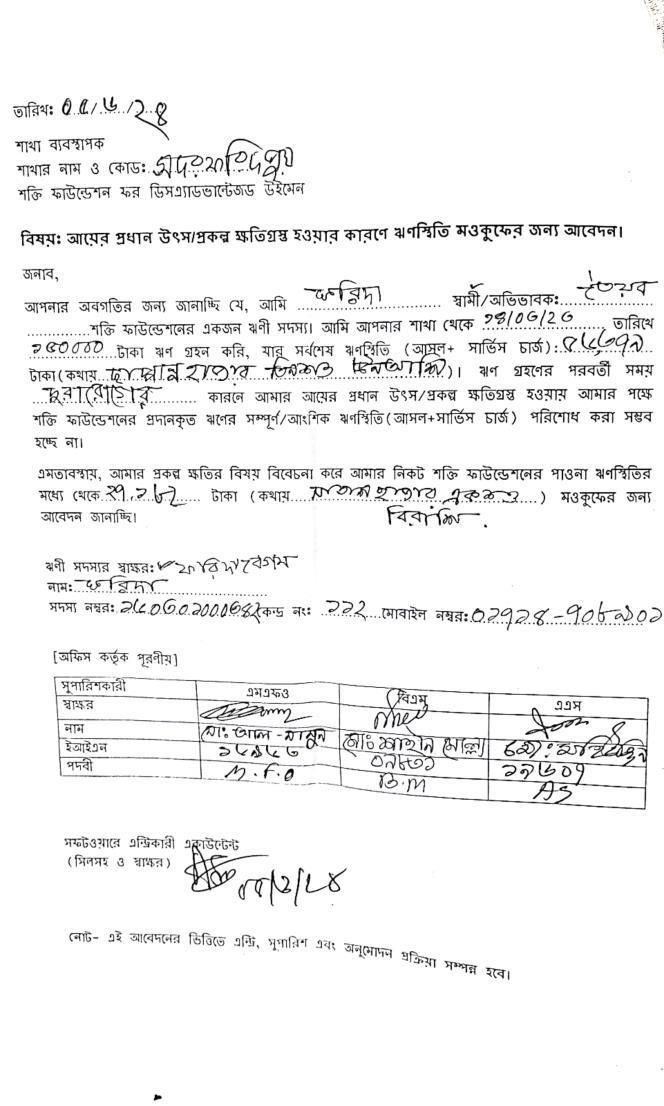 তারিখ: ০৫/৬/২৪
শাখা ব্যবস্থাপক
শাখার নাম ও কোড: সদরফরিদপুর
শক্তি ফাউন্ডেশন ফর ডিসএ্যাডভান্টেজড উইমেন
বিষয়: আয়ের প্রধান উৎস/প্রকল্প ক্ষতিগ্রস্থ হওয়ার কারণে ঋণস্থিতি মওকুফের জন্য আবেদন।
জনাব,
আপনার অবগতির জন্য জানাচ্ছি যে, আমি ফরিদা স্বামী/অভিভাবক: তৈয়ব
শক্তি ফাউন্ডেশনের একজন ঋণী সদস্য। আমি আপনার শাখা থেকে তারিখে
টাকা ঋণ গ্রহন করি, যার সর্বশেষ ঋণস্থিতি (আসল+ সার্ভিস চার্জ):
টাকা(কথায় হাজার তিনশত )। ঋণ গ্রহণের পরবর্তী সময়
দুরারোগ্যের কারনে আমার আয়ের প্রধান উৎস/প্রকল্প ক্ষতিগ্রস্থ হওয়ায় আমার পক্ষে
শক্তি ফাউন্ডেশনের প্রদানকৃত ঋণের সম্পূর্ণ/আংশিক ঋণস্থিতি(আসল+সার্ভিস চার্জ) পরিশোধ করা সম্ভব
হচ্ছে না।
এমতাবস্থায়, আমার প্রকল্প ক্ষতির বিষয় বিবেচনা করে আমার নিকট শক্তি ফাউন্ডেশনের পাওনা ঋণস্থিতির
মধ্যে থেকে টাকা (কথায় হাজার একশত ) মওকুফের জন্য
আবেদন জানাচ্ছি। বিরাশি.
ঋণী সদস্যর স্বাক্ষর: ফরিদা বেগম
নাম: ফরিদা
সদস্য নম্বর: কেন্দ্র নং: ২২২ মোবাইল নম্বর:
[অফিস কর্তৃক পূরণীয়]
সুপারিশকারী এমএফও বিএম এএস
স্বাক্ষর
নাম মোঃ আল-মামুন মোঃ শাহীন মোল্লা
ইআইএন
পদবী M.F.O B.M AS
সফটওয়ারে এন্ট্রিকারী একাউন্টেন্ট
(সিলসহ ও স্বাক্ষর)
নোট- এই আবেদনের ভিত্তিতে এন্ট্রি, সুপারিশ এবং অনুমোদন প্রক্রিয়া সম্পন্ন হবে।